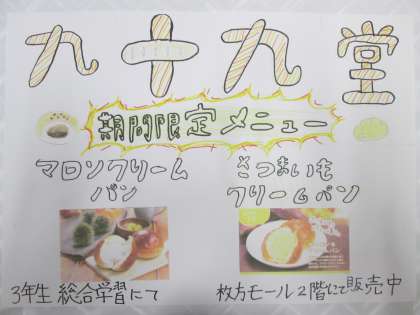 九十九堂
期間限定メニュー
マロンクリーム
パン
さつまいも
クリームパン
3年生 総合学習にて
枚方モール2階にて販売中